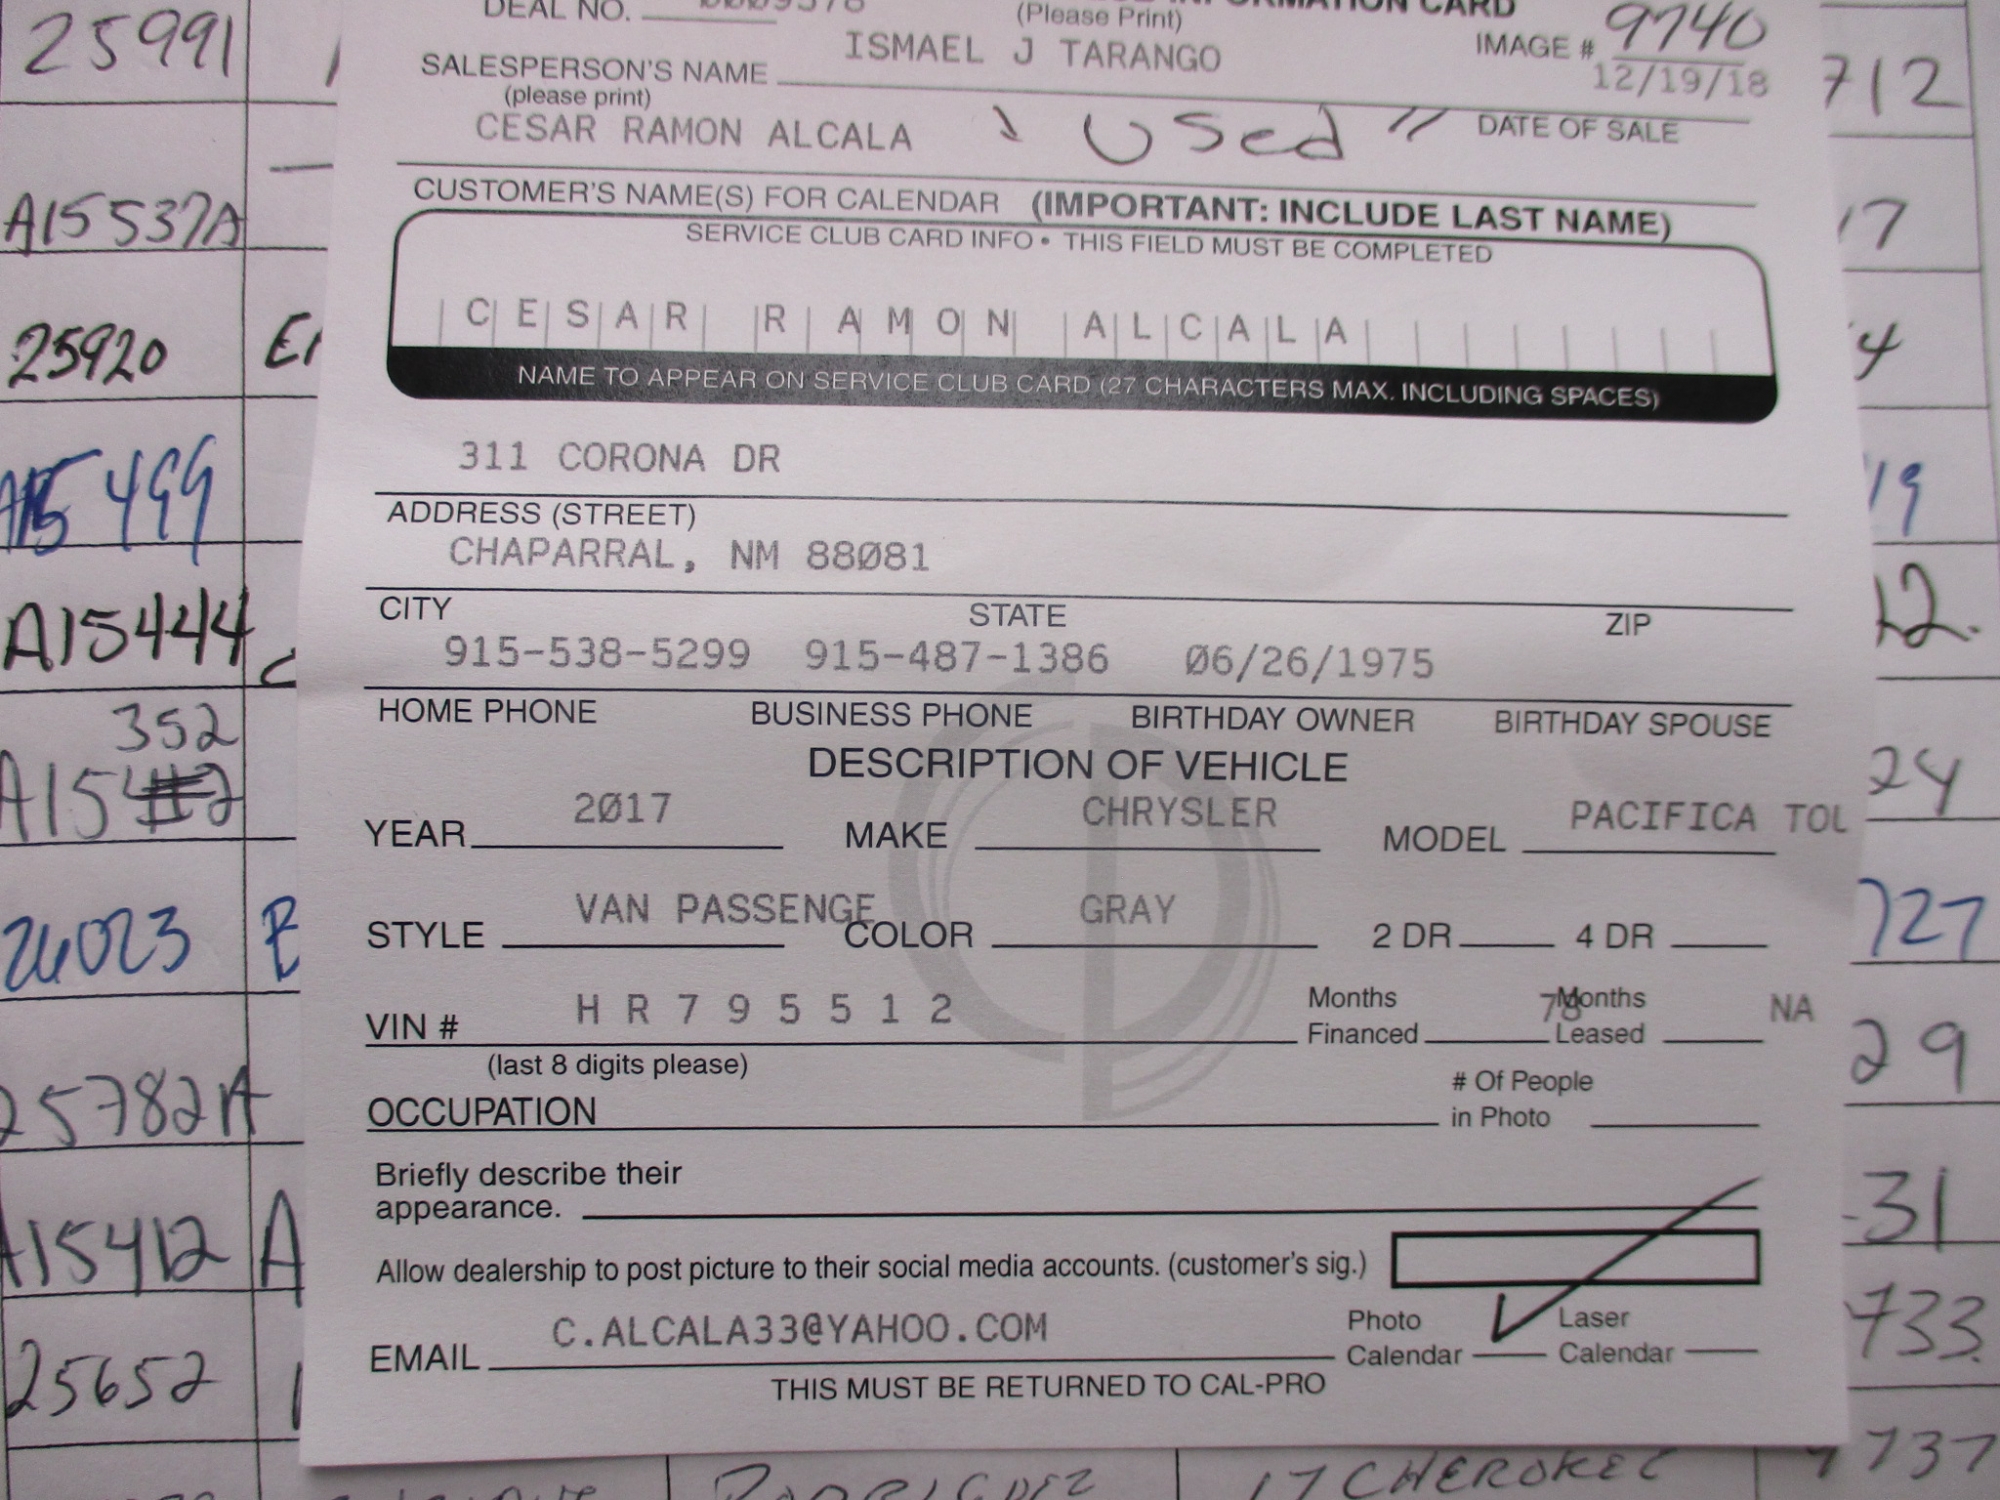 DEAL NO.
(Please Print)
INFORMATION CARD
IMAGE # 9740
SALESPERSON'S NAME ISMAEL J TARANGO
(please print)
12/19/18
DATE OF SALE
CESAR RAMON ALCALA " Used "
CUSTOMER'S NAME(S) FOR CALENDAR (IMPORTANT: INCLUDE LAST NAME)
SERVICE CLUB CARD INFO • THIS FIELD MUST BE COMPLETED
CESAR RAMON ALCALA
NAME TO APPEAR ON SERVICE CLUB CARD (27 CHARACTERS MAX. INCLUDING SPACES)
311 CORONA DR
ADDRESS (STREET)
CHAPARRAL, NM 88081
CITY STATE ZIP
915-538-5299 915-487-1386 06/26/1975
HOME PHONE BUSINESS PHONE BIRTHDAY OWNER BIRTHDAY SPOUSE
DESCRIPTION OF VEHICLE
YEAR 2017 MAKE CHRYSLER MODEL PACIFICA TOU
STYLE VAN PASSENGE COLOR GRAY 2 DR 4 DR
VIN # H R 7 9 5 5 1 2 Months Financed 78 Months Leased NA
(last 8 digits please)
OCCUPATION # Of People in Photo
Briefly describe their
appearance.
Allow dealership to post picture to their social media accounts. (customer's sig.)
EMAIL C.ALCALA33@YAHOO.COM Photo Calendar Laser Calendar
THIS MUST BE RETURNED TO CAL-PRO
25991
A15537A
25920
A15499
A15444
352
26023
25782A
A15412
25652
712
17
4
19
12.
24
727
29
31
733.
RODRIGUEZ 17 CHEROKEE 9737